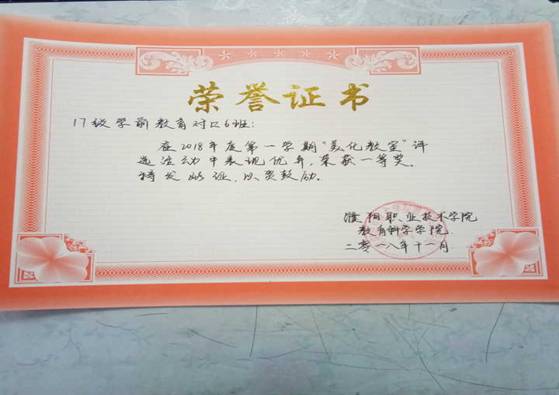 荣誉证书
17级学前教育对口6班:
在2018年度第一学期"美化教室"评
选活动中表现优异,荣获一等奖。
特发此证,以资鼓励。
濮阳职业技术学院
教育科学学院
二零一八年十一月